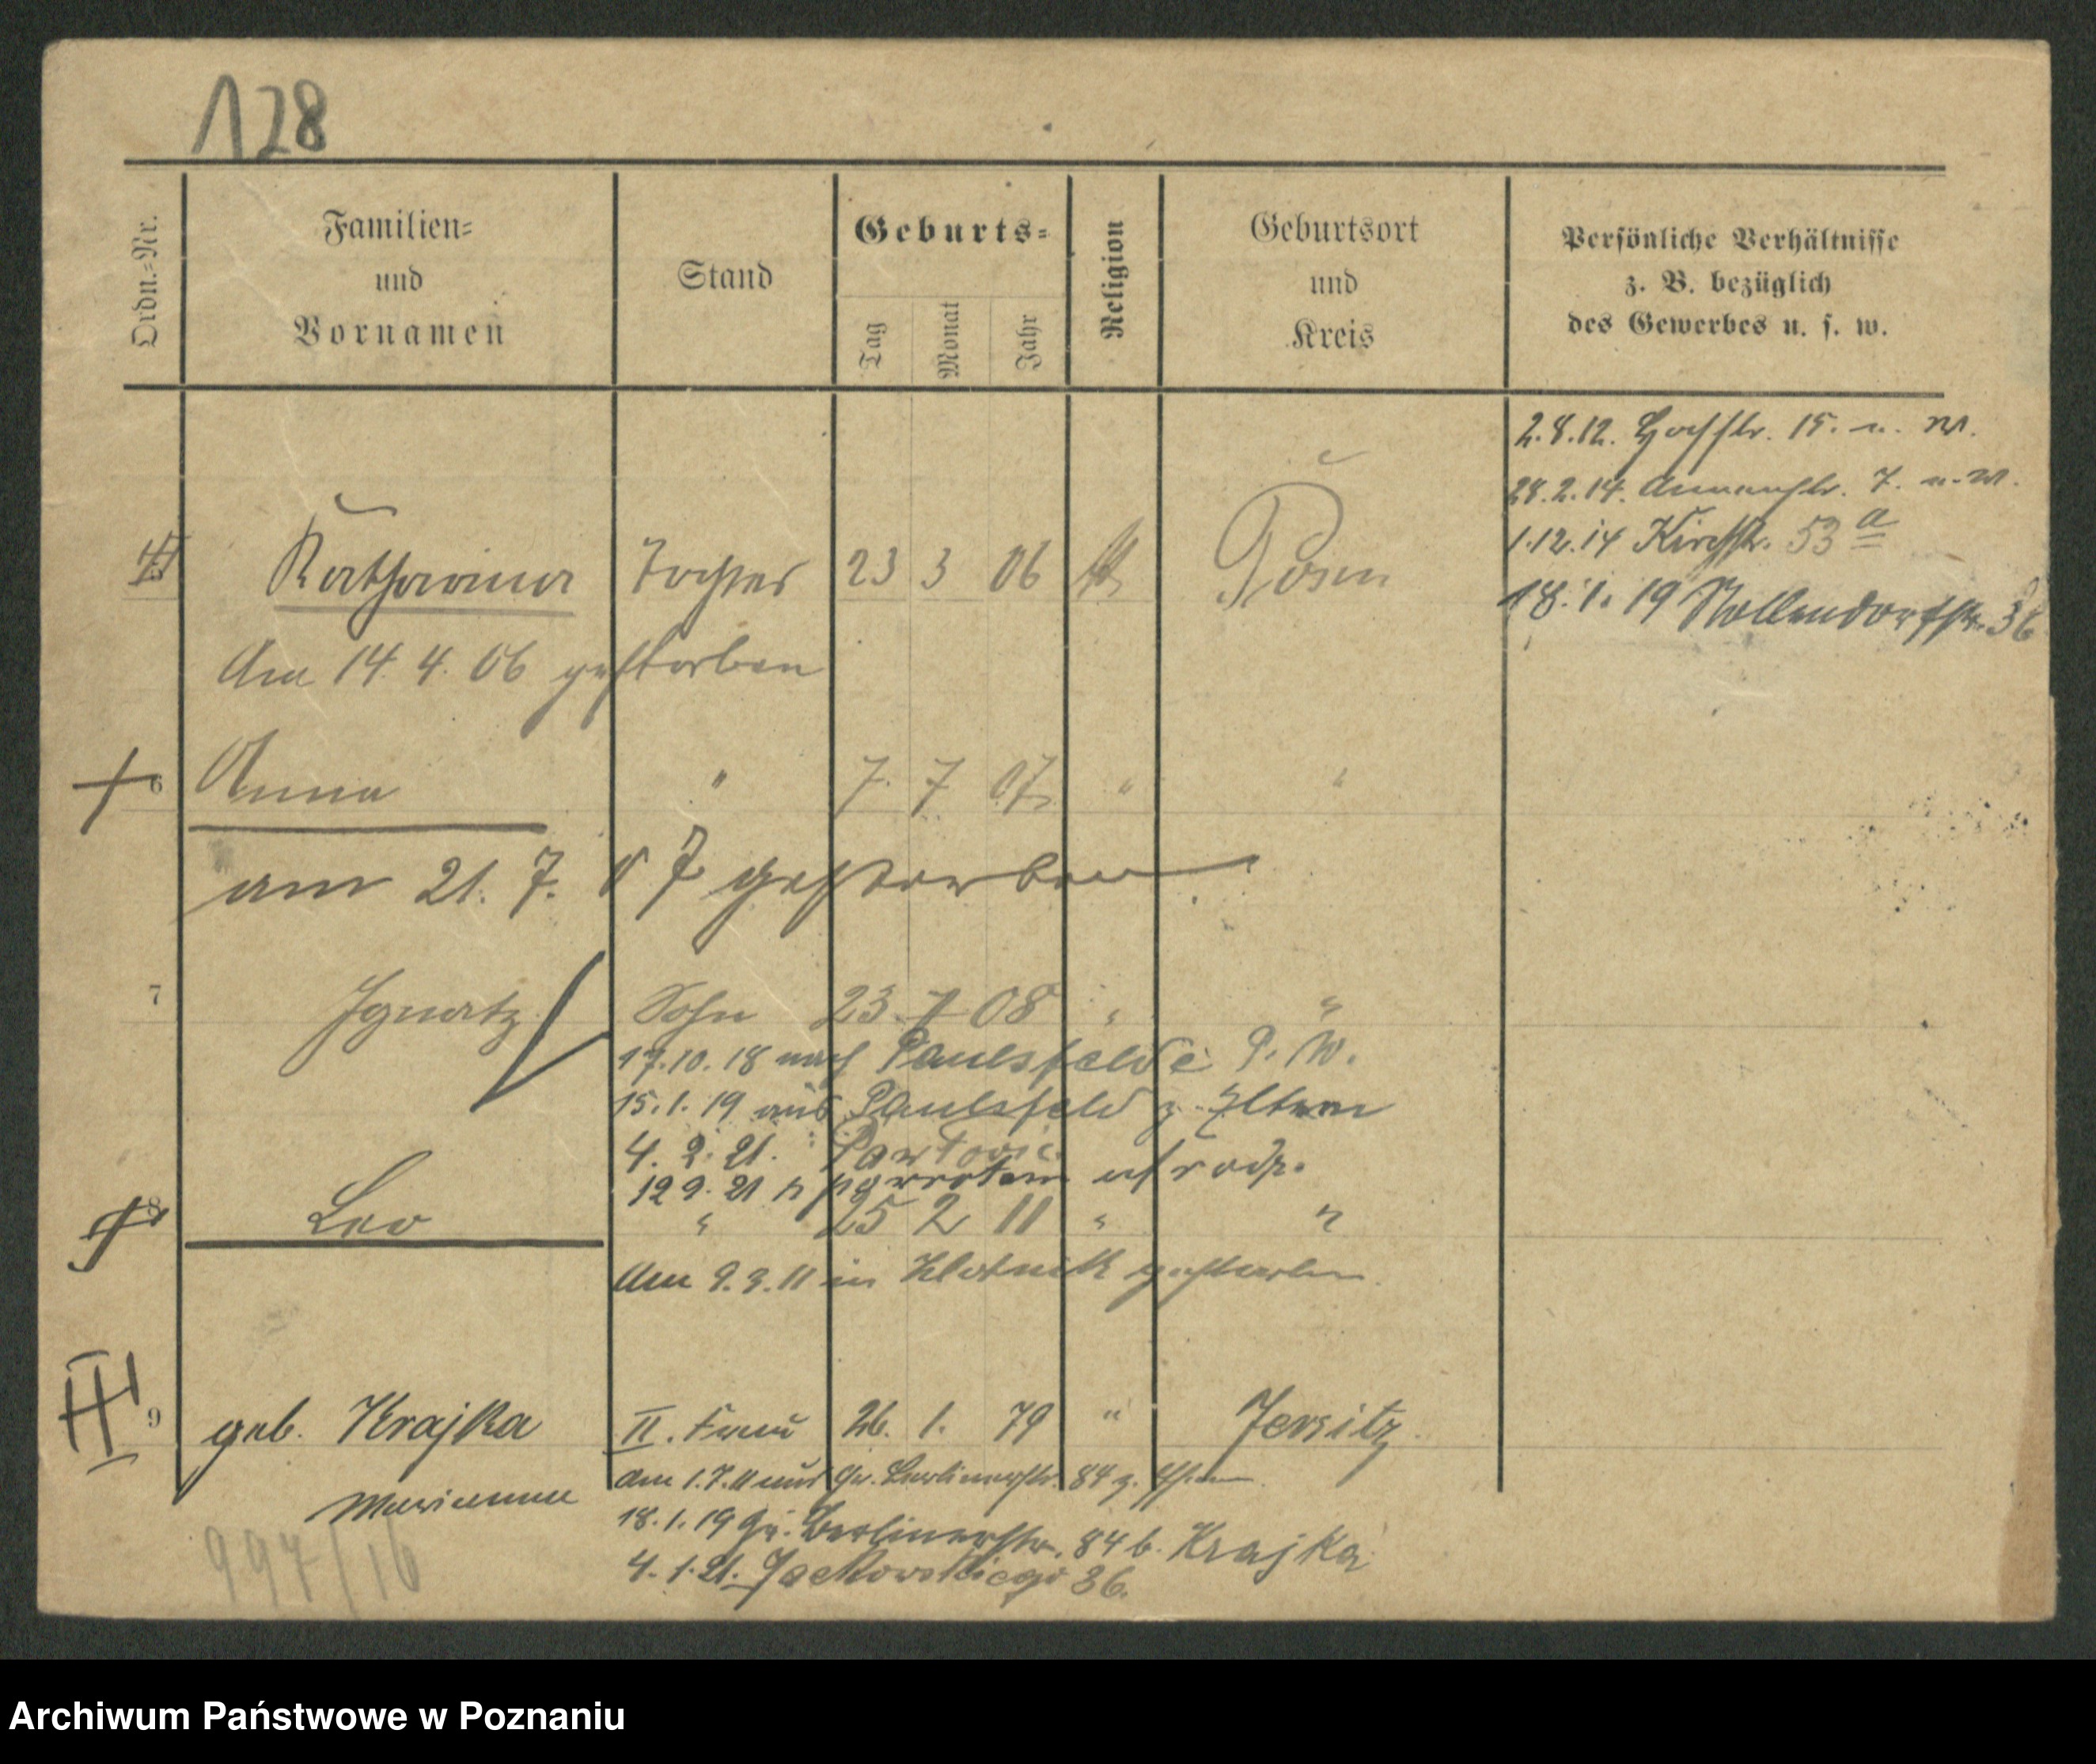 128
Ordn.-Nr.
Familien-
und
Vornamen
Stand
Geburts-
Tag
Monat
Jahr
Religion
Geburtsort
und
Kreis
Persönliche Verhältnisse
z. B. bezüglich
des Gewerbes u. s. w.
2.8.12. 15. u. W.
28.2.14. 7. u. W.
1.12.14 Kirchstr. 53 a
18.1.19 Nollendorfstr. 36
Katharina Tochter 23 3 06 Posen
Am 14. 4. 06 gestorben
6 Anna " 7. 7 07 " "
am 21. 7. 07 gestorben
7 Ignatz Sohn 23. 7 08 " "
17.10.18 nach Paulsfelde P. W.
15.1.19 aus Paulsfeld z. Eltern
4. 2. 21.
12 9. 21 z powrotem
8 Leo " 25 2 11 " "
Am 9.3.11 in gestorben.
9 geb. Krajka II. Frau 26. 1. 79 " Jersitz
Marianna
am 1.7.11 aus Gr. Berlinerstr. 84 z.
18.1.19 Gr. Berlinerstr. 84 b. Krajka
4.1.21. Jackowskiego 36.
997/16
Archiwum Państwowe w Poznaniu